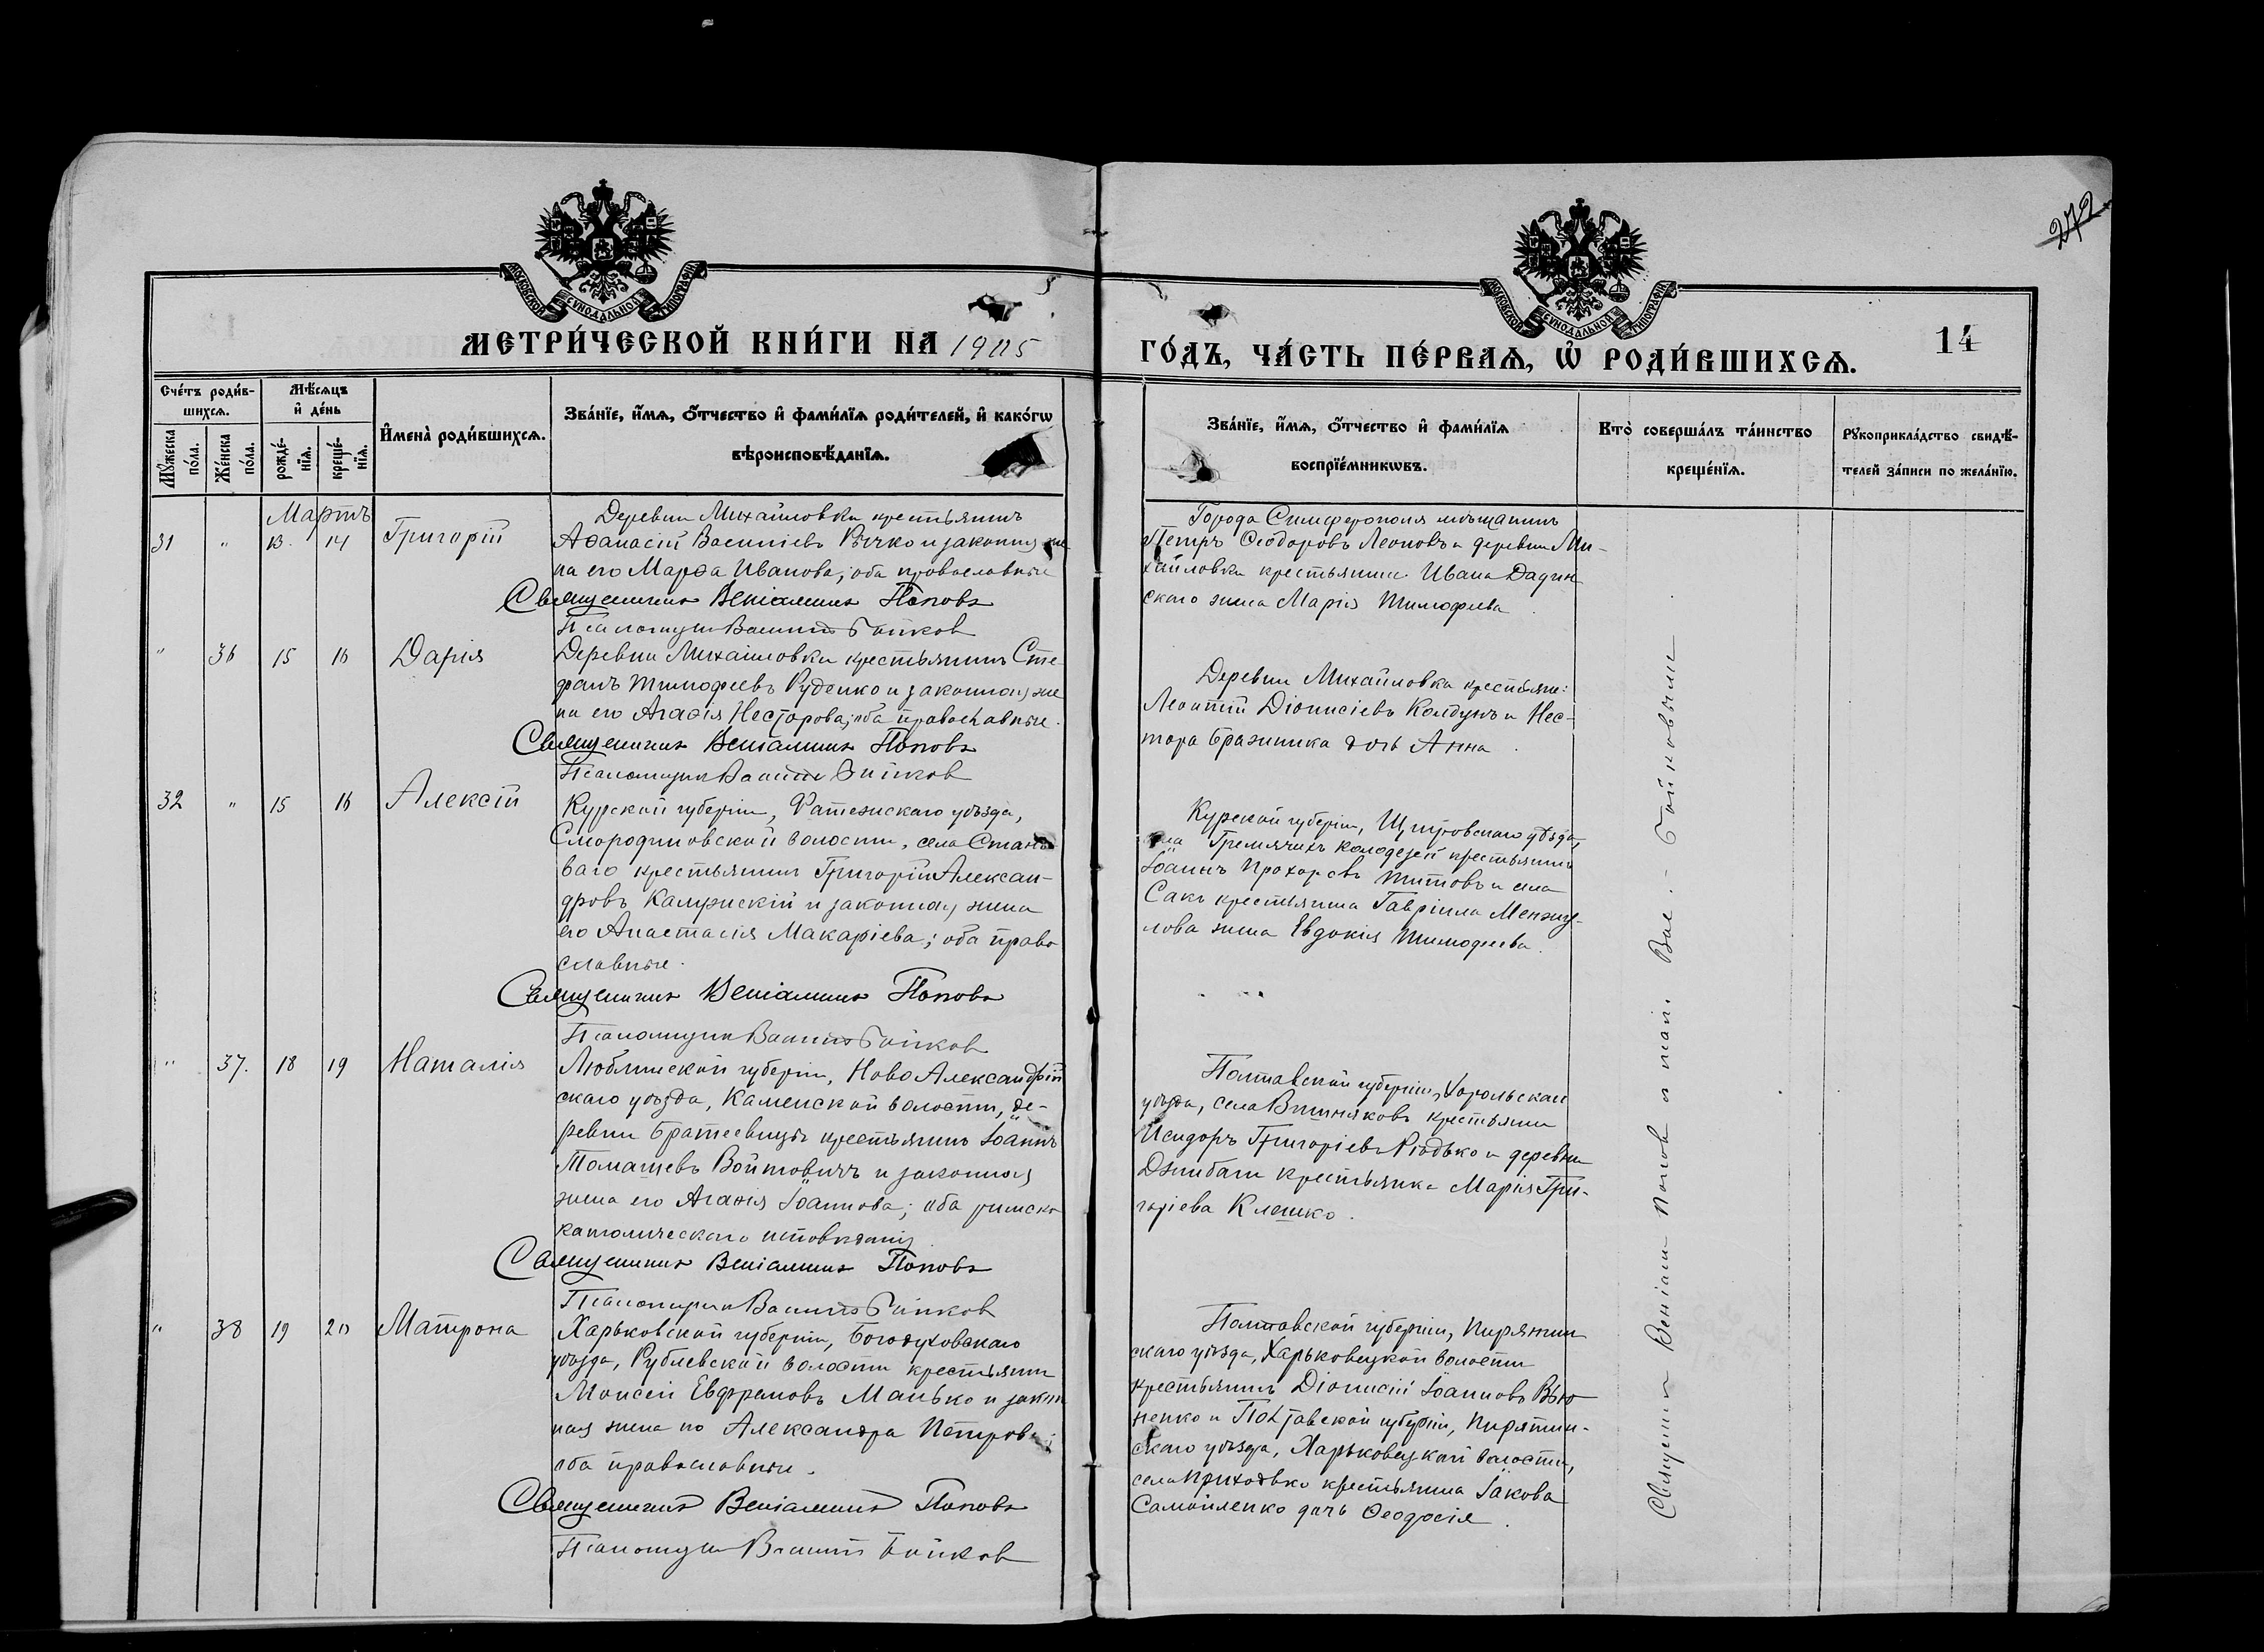 272
МОСКОВСКОЙ СУНОДАЛЬНОЙ ТИПОГРАФІИ
МОСКОВСКОЙ СУНОДАЛЬНОЙ ТИПОГРАФІИ
МЕТРИ́ЧЕСКОЙ КНИ́ГИ НА 1905
ГО́ДЪ, ЧА́СТЬ ПЕ́РВАѦ, Ѡ҆ РОДИ́ВШИХСѦ.
14
Сче́тъ роди́в-
шихсѧ.
Мꙋ́жеска по́ла.
Же́нска по́ла.
Мѣ́сѧцъ
и҆ де́нь
рожде́-
нїѧ.
креще́-
нїѧ.
И҆мена̀ роди́вшихсѧ.
Зва́нїе, и҆́мѧ, ѻ҆́тчество и҆ фами́лїѧ роди́телей, и҆ како́гѡ
вѣроисповѣ́данїѧ.
Зва́нїе, и҆́мѧ, ѻ҆́тчество и҆ фами́лїѧ
воспрїе́мникѡвъ.
Кто̀ соверша́лъ та́инство
креще́нїѧ.
Рꙋкоприкла́дство свидѣ́-
телей за́писи по жела́нїю.
Мартъ
31 " 13. 14 Григорій
Деревни Михайловки крестьянинъ
Аѳанасій Василіевъ Рѣчко и законная же
на его Марѳа Иванова; оба православные
Священникъ Веніаминъ Поповъ
Псаломщикъ Василій Бойков
Города Симферополя мѣщанинъ
Петръ Ѳеодоровъ Леоновъ и деревни Ми-
хайловки крестьянина Ивана Дадин
скаго жена Марія Тимофеева
" 36 15 16 Дарія
Деревни Михайловки крестьянинъ Сте
фанъ Тимофеевъ Руденко и законная же
на его Агаѳія Несторова; оба православные.
Священникъ Веніаминъ Поповъ
Псаломщикъ Василій Бойков
Деревни Михайловки крестьяне:
Леонтій Діонисіевъ Колдунъ и Нес-
тора Бражника дочь Анна.
32 " 15 16 Алексій
Курской губерніи, Фатежскаго уѣзда,
Смородиновской волости, села Стано
ваго крестьянинъ Григорій Алексан-
дровъ Калужскій и законная жена
его Анастасія Макаріева; оба право
славные.
Священникъ Веніаминъ Поповъ
Псаломщикъ Василій Бойков
Курской губерніи, Щигровскаго уѣзда,
села Гремячихъ Колодезей крестьянинъ
Іоаннъ Прохоровъ Титовъ и села
Сакъ крестьянина Гавріила Менжу-
лова жена Евдокія Тимофеева.
" 37. 18 19 Наталія
Люблинской губерніи, Ново Александрій
скаго уѣзда, Каменской волости, де-
ревни крестьянинъ Іоаннъ
Томашевъ Войтовичъ и законная
жена его Агаѳія Іоаннова; оба римско
католическаго исповѣданія
Священникъ Веніаминъ Поповъ
Псаломщикъ Василій Бойков
Полтавской губерніи, Хорольскаго
уѣзда, села Вишняковъ крестьянинъ
Исидоръ Григоріевъ Рѣдько и деревни
крестьянка Марія Гри-
горіева Клешко.
" 38 19 20 Матрона
Харьковской губерніи, Богодуховскаго
уѣзда, Рублевской волости крестьянинъ
Моисей Евфремовъ Манько и закон
ная жена его Александра Петрова;
оба православные.
Священникъ Веніаминъ Поповъ
Псаломщикъ Василій Бойков
Полтавской губерніи, Пирятин
скаго уѣзда, Харьковецкой волости
крестьянинъ Діонисій Іоанновъ Вью
ненко и Полтавской губерніи, Пирятин-
скаго уѣзда, Харьковецкой волости,
села Приходько крестьянина Іакова
Самойленко дочь Ѳеодосія.
Священникъ Веніамин Попов и псал. Вас. Бойковымъ